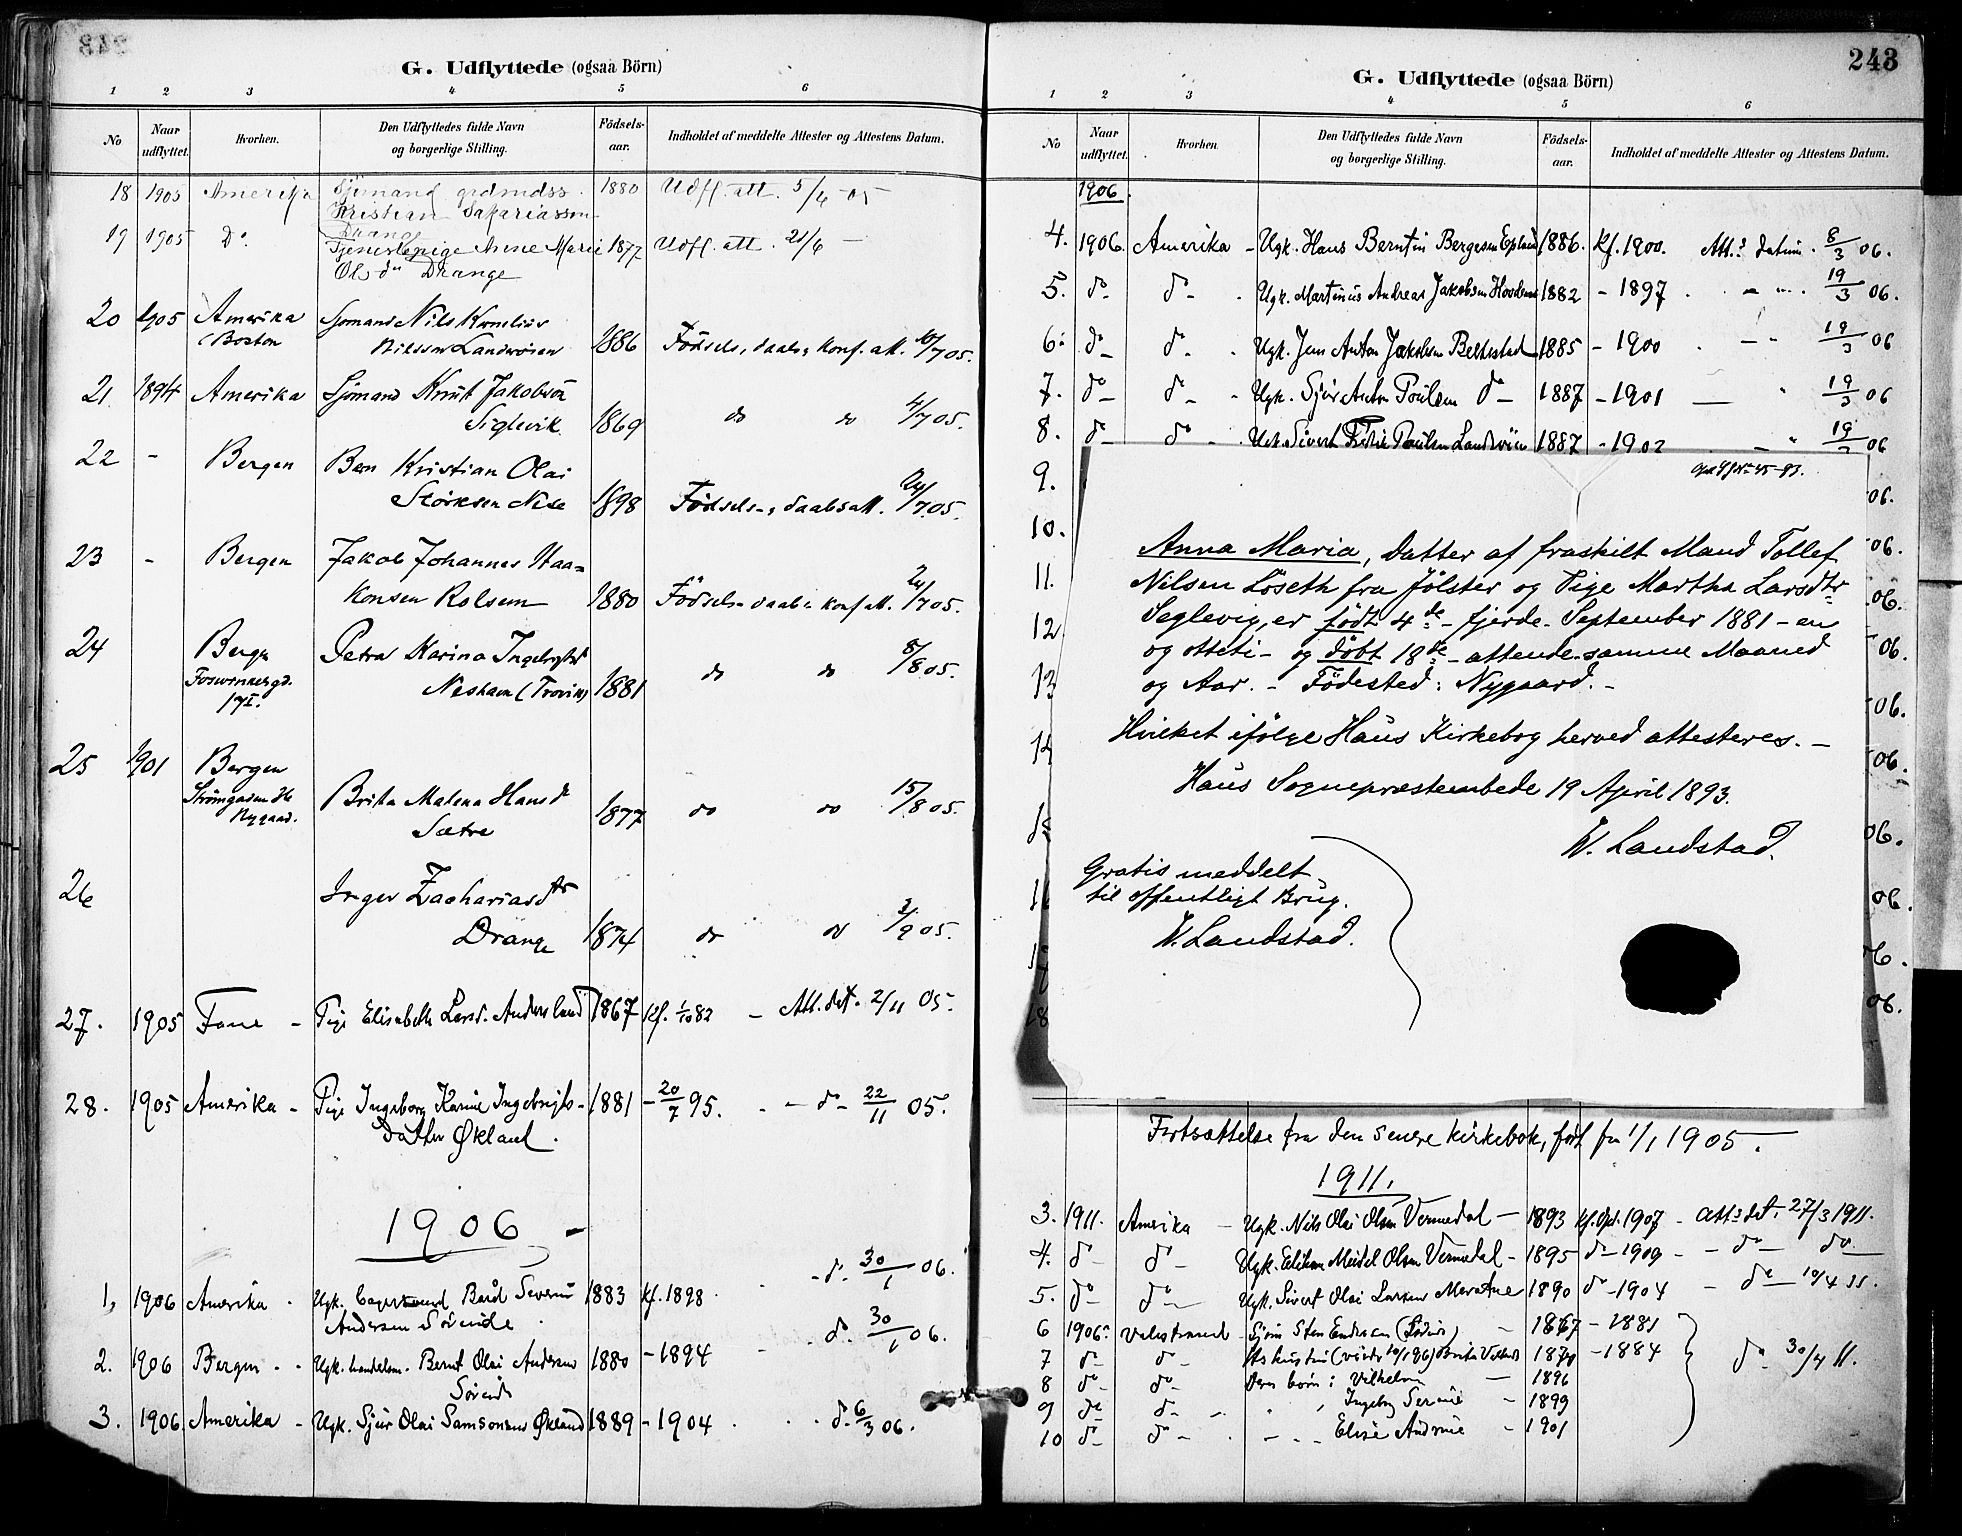 243
G. Udflyttede (ogsaa Börn)
1 2 3 4 5 6
No Naar udflyttet. Hvorhen. Den Udflyttedes fulde Navn og borgerlige Stilling. Födsels-aar. Indholdet af meddelte Attester og Attestens Datum.
18 1905 Amerika Sjömand 1880 Udfl. att. 5/6 - 05
Kristian Sakariasson
Drange
19 1905 Do. Tjenestepige Anne Marie 1877 Udfl. att. 21/6 -
Ols dtr Drange
20 1905 Amerika Sjomand Nils Kornelius
(Boston Nilssen Landroisen 1886 Födsels, daabs, konf. att. 10/7 05.
21. 1894 Amerika Sjömand Knut Jakobson
Siglevik 1869 do do 4/7 05.
22 - Bergen Barn Kristian Olai
Störksen Nese 1898 Födsels-, daabsatt. 24/7 05.
23 - Bergen Jakob Johannes Haa=
konsen Rolsem 1880 Födsels- daab: konf att. 24/7 05.
24 Bergen Petra Karina Ingebrigtsd
Foswinkergd. 17I. Neshavn (Trovik) 1881 do do 8/8 05.
25 1901 Bergen
Strömgaden 46 Brita Malena Hansd 1877 do do 15/8 05.
Nygaard. Sætre
26 Inger Zachariasdtr
Drange 1874 do do 2/9 05.
27. 1905 Fane - Pige Elisabeth Larsd. Andersland 1867 Kf. 1/10 82 - Att. dat. 2/11 05-
28. 1905 Amerika - Pige Ingeborg Karine Ingebrigts- 1881 - 20/7 95. - - do - 22/11 05.
datter Økland.
1906 -
1, 1906 Amerika . Ugk. Baard Severin 1883 Kf. 1898 - do. 30/1 06.
Andersen Sörvide
2. 1906 Bergen - - Ugk. handelsm. Bernt Olai Andersen 1880 - 1894 - do. 30/1 06.
Sörvide
3. 1906 Amerika - Ugk. Sjur Olai Samsonsen Økland 1889 - 1904 . do. 6/3 06.
243
G. Udflyttede (ogsaa Börn)
1 2 3 4 5 6
No Naar udflyttet. Hvorhen. Den Udflyttedes fulde Navn og borgerlige Stilling. Födsels-aar. Indholdet af meddelte Attester og Attestens Datum.
1906.
4. 1906. Amerika - Ugk. Hans Berntin Bergesen Epland 1886. Kf. 1900. Att.s datum. 8/3 06.
5. do - do - . Ugk. Martinus Andreas Jakobsen Hovdenes 1882 - 1897 . - " . 19/3 06.
6. do - do - . Ugk. Jens Anton Jakobsen Beltestad 1885 - 1900 . - - 19/3 06
7. do - do - - Ugk. Sjur Anton Poulsen do - 1887 - 1901 - " 19/3 06
8. do - do - . Ugk. Sivert Fedrik Poulsen Landroisen 1887 - 1902 - " 19/3 06
9. 06.
10. 06.
11. 06.
12. 06.
13 06.
14 06.
15 06.
06.
06.
18 06.
Anna Maria, datter af fraskilt Mand Tollef
Nilsen Löseth fra Jölster og Pige Martha Larsdtr
Seglevig, er födt 4de - fjerde - September 1881 - en
og otteti - og döbt 18de - attende samme Maaned
og Aar. - Födested: Nygaard. -
Hvilket ifölge Haus Kirkebog herved attesteres. -
Haus Sognepræstembede 19 April 1893.
W. Landstad.
Gratis meddelt
til offentligt Brug.
W. Landstad.
Fortsættelse fra den senere kirkebok, fört fra 1/1 1905.
1911.
3. 1911. Amerika - Ugk. Nils Olai Olsen Vermedal - 1893 Kf. Opl. 1907 - att.s dat. 27/3 1911.
4. do - do - Ugk. Elikem Meidel Olsen Vermedal - 1895 do - 1909 - - do - do
5. do - do - Ugk. Sivert Olai Larsen 1890 do - 1904 - do - 10/4 11.
6 1906. Valestrand - Sten Endresen - 1867 - 1881
7 do - do - 1870 - 1884 do 30/4 11.
8 do - do - Deres börn: Vilhelm - 1896
9 do - do - - . , Ingeborg Serine - 1899
10 do - do - . - - - Elise Andrine - 1901